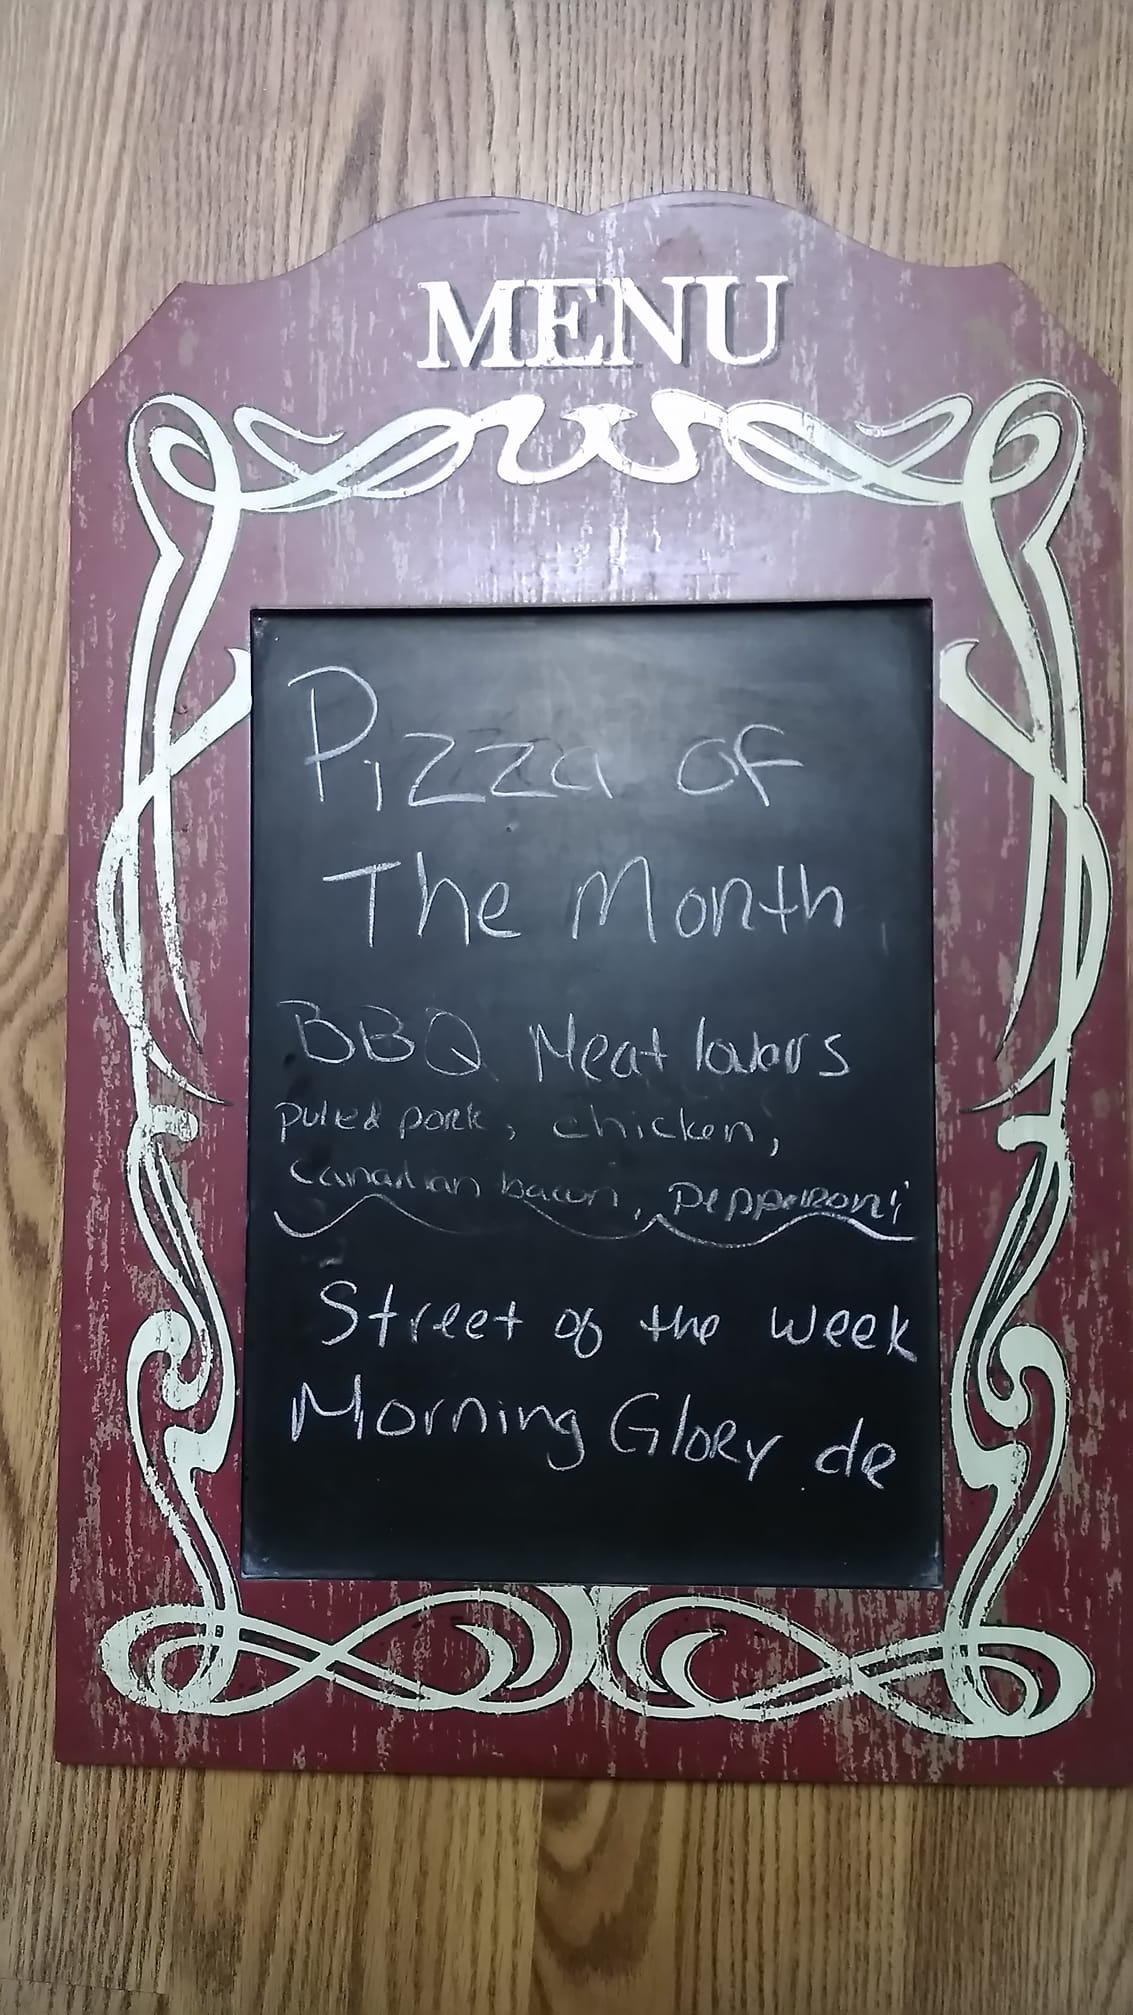 MENU
Pizza of
The Month
BBQ Meat lovers
puled pork, chicken,
Canadian bacon, Pepperoni
Street of the week
Morning Glory dr